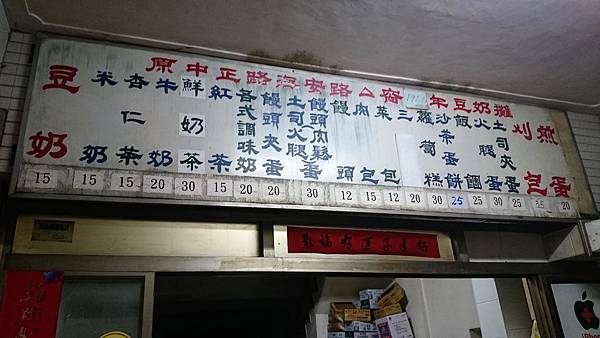 原中正路海安路公廁年豆奶攤
豆奶
米奶
杏仁茶
牛奶
鮮奶茶
紅茶
各式調味奶
饅頭夾蛋
土司火腿蛋
饅頭肉鬆蛋
饅頭
肉包
菜包
三
蘿蔔糕
沙茶蛋餅
飯糰
火腿蛋
土司夾蛋
刈包
煎蛋
15 15 15 20 30 15 20 20 30 12 15 12 20 30 25 25 30 25 20